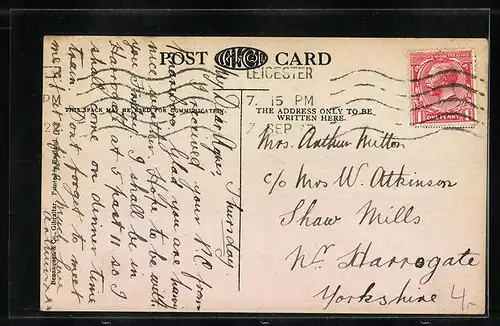 POST CARD
LEICESTER
7. 15 PM
7 SEP
PM
THIS SPACE MAY BE USED FOR COMMUNICATION.
THE ADDRESS ONLY TO BE
WRITTEN HERE.
ONE PENNY
Thursday
My Dear Agnes
I received your P.C. from
Glad you are having
nice weather Hope to be with
you Friday I shall be in
Harrogate at 5 past 11 so I
shall come on dinner time
train. Don't forget to meet
me
love
Mrs. Arthur Mitton
c/o Mrs W. Atkinson
Shaw Mills
Nr. Harrogate
Yorkshire
4.-